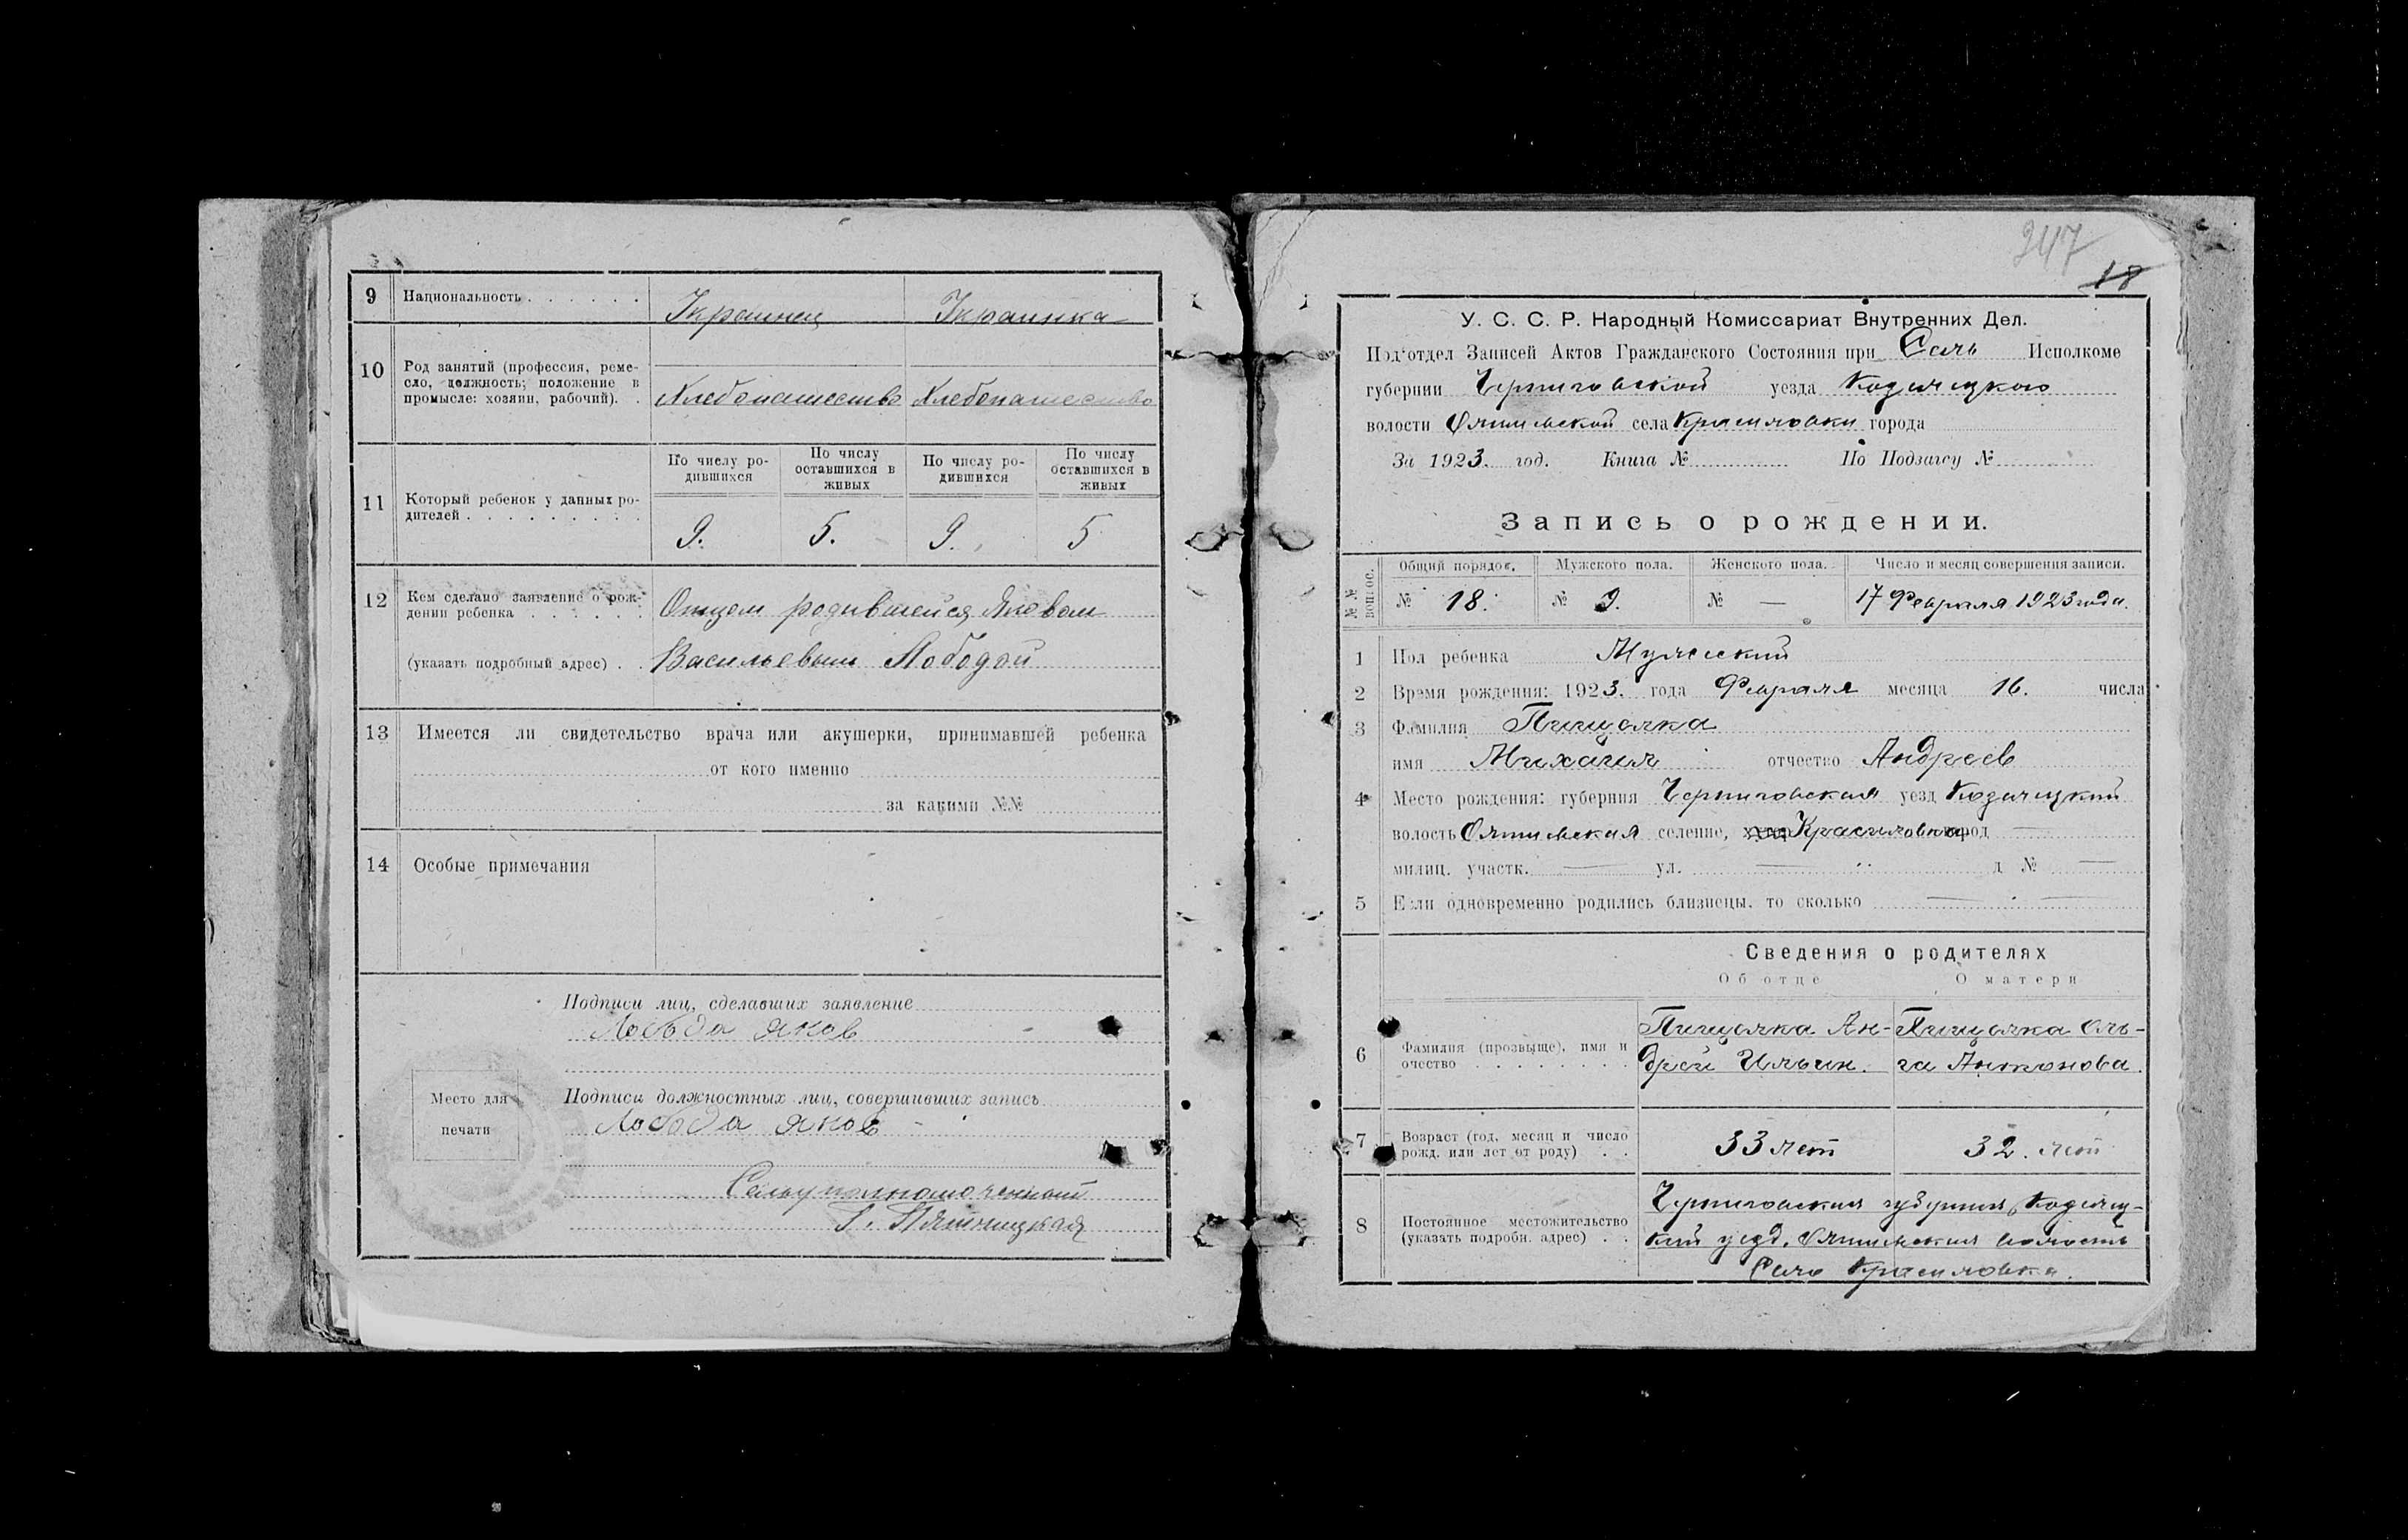 9 Национальность . . . . . . Украинец Украинка
10 Род занятий (профессия, реме-
сло, должность; положение в
промысле: хозяин, рабочий). . Хлебопашество Хлебопашество
По числу ро-
дившихся По числу
оставшихся в
живых По числу ро-
дившихся По числу
оставшихся в
живых
11 Который ребенок у данных ро-
дителей . . . . . . . . . 9. 5. 9. 5
12 Кем сделано заявление о рож-
дении ребенка . . . . . . Отцом родившейся Яковом
(указать подробный адрес) . . Васильевым Лободой
13 Имеется ли свидетельство врача или акушерки, принимавшей ребенка
от кого именно
за какими №№
14 Особые примечания
Подписи лиц, сделавших заявление
Лобода Яков
Место для
печати
Подписи должностных лиц, совершивших запись
Лобода Яков
Сельуполномоченный
Г. Пятницкая
247
18
У. С. С. Р. Народный Комиссариат Внутренних Дел.
Подотдел Записей Актов Гражданского Состояния при Сель Исполкоме
губернии Черниговской уезда Козелецкого
волости села Красиловки города
За 1923. год. Книга № По Подзагсу №
Запись о рождении.
№ № вопрос. Общий порядок. Мужского пола. Женского пола. Число и месяц совершения записи.
№ 18. № 9. № — 17 Февраля 1923 года.
1 Пол ребенка Мужеский
2 Время рождения: 1923. года Февраля месяца 16. числа
3 Фамилия Пищалка
имя Михаил отчество Андреев
4 Место рождения: губерния Черниговская уезд Козелецкий
волость селение, Красиловка город —
милиц. участк. — ул. — д № —
5 Если одновременно родились близнецы. то сколько — —
Сведения о родителях
Об отце О матери
6 Фамилия (прозвище), имя и
очество . . . . . . . .
Пищалка Ан-
дрей Ильин.
Пищалка Оль-
га Антонова.
7 Возраст (год, месяц и число
рожд. или лет от роду) . . 33 лет 32. лет
8 Постоянное местожительство
(указать подробн. адрес) . .
Черниговская губерния, Козелец-
кий уезд, волость
Село Красиловка.